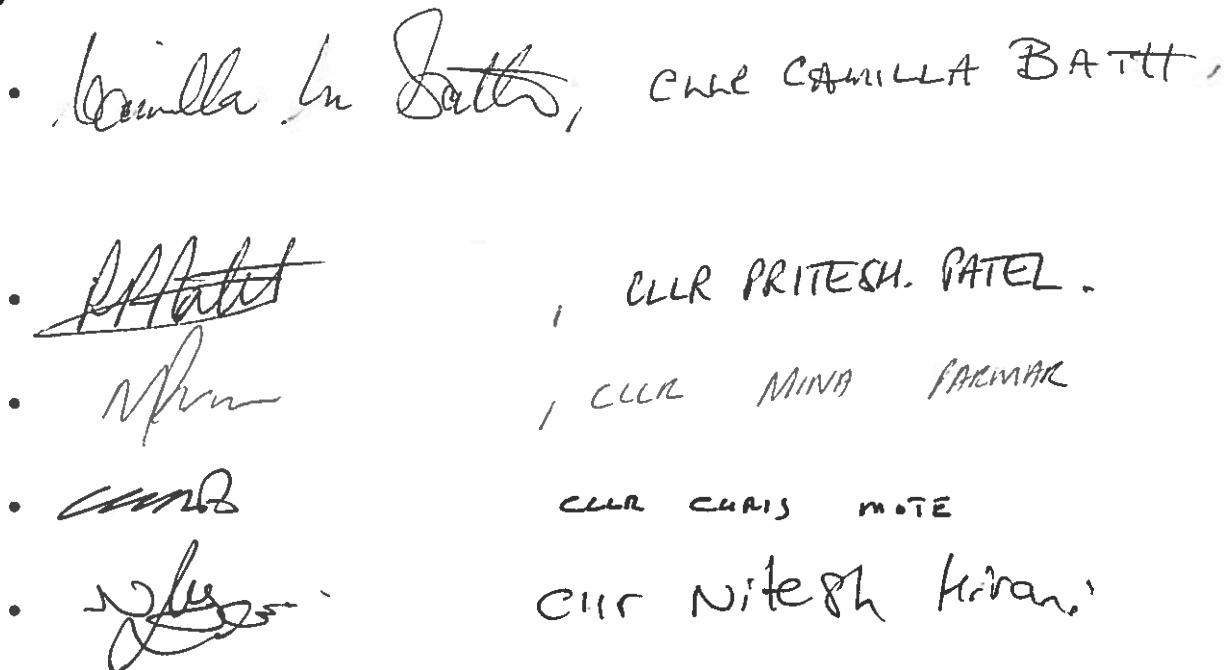 Camilla Batth, CLLR CAMILLA BATTH,
, CLLR PRITESH. PATEL.
, CLLR MINA PARMAR
CLLR CHRIS MOTE
Cllr Nitesh Hirani